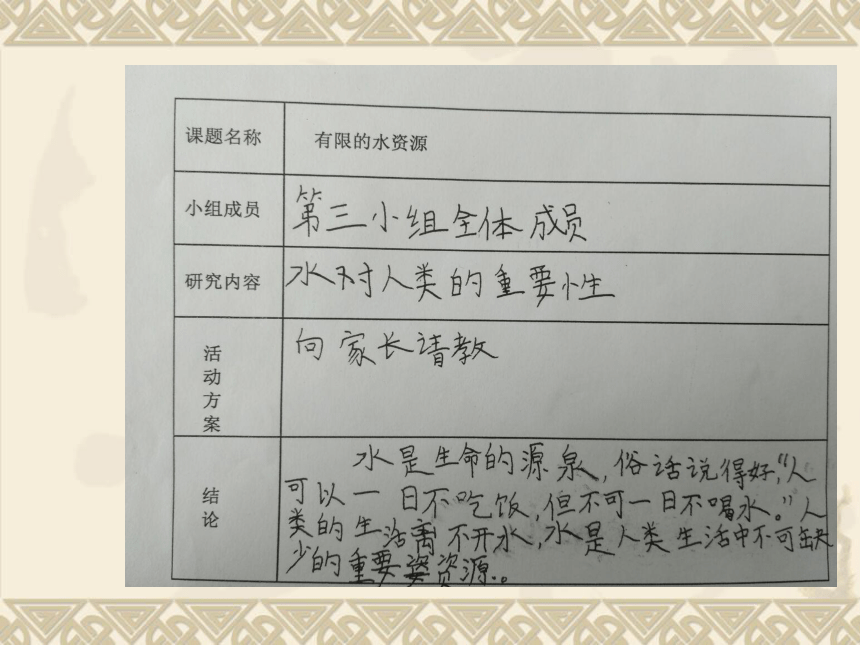 课题名称 有限的水资源
小组成员 第三小组全体成员
研究内容 水对人类的重要性
活动方案 向家长请教
结论
水是生命的源泉,俗话说得好,“人
可以一日不吃饭,但不可一日不喝水。”人
类的生活离不开水,水是人类生活中不可缺
少的重要资源。